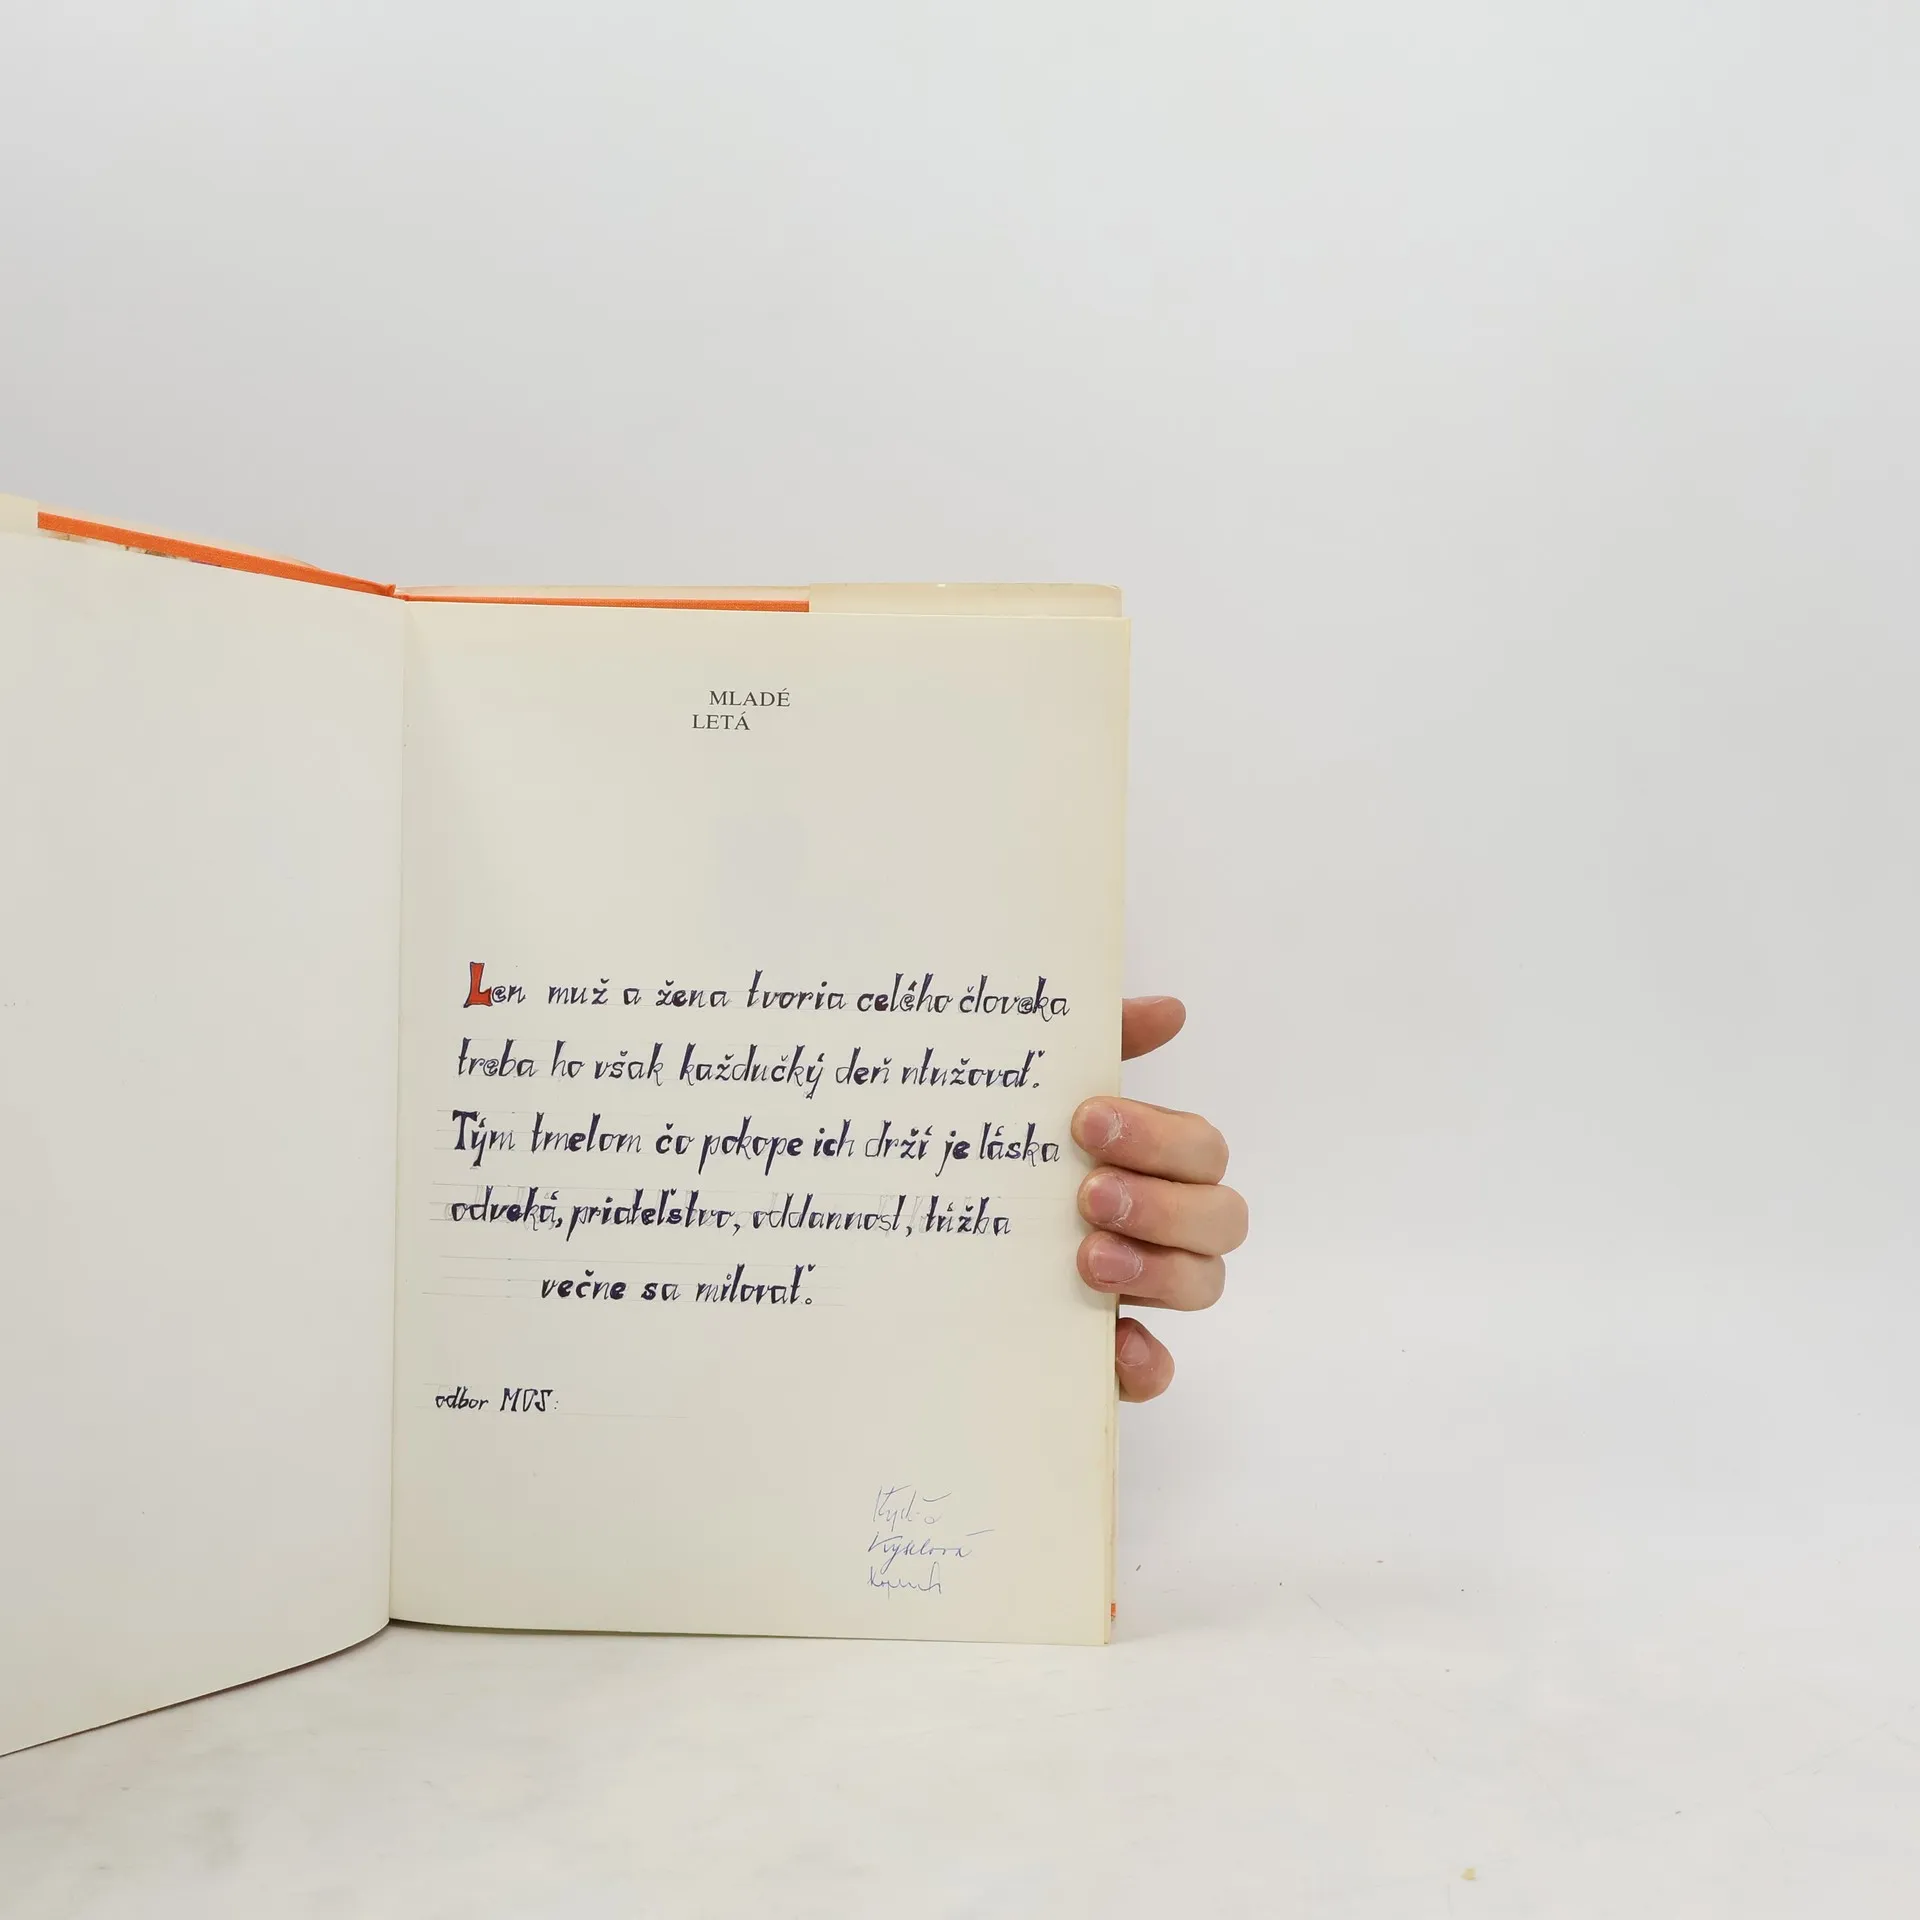 MLADÉ
LETÁ
Len muž a žena tvoria celého človeka
treba ho však každučký deň utužovať.
Tým tmelom čo pokope ich drží je láska
odveká, priateľstvo, oddannosť, túžba
večne sa milovať.
odbor MOS: